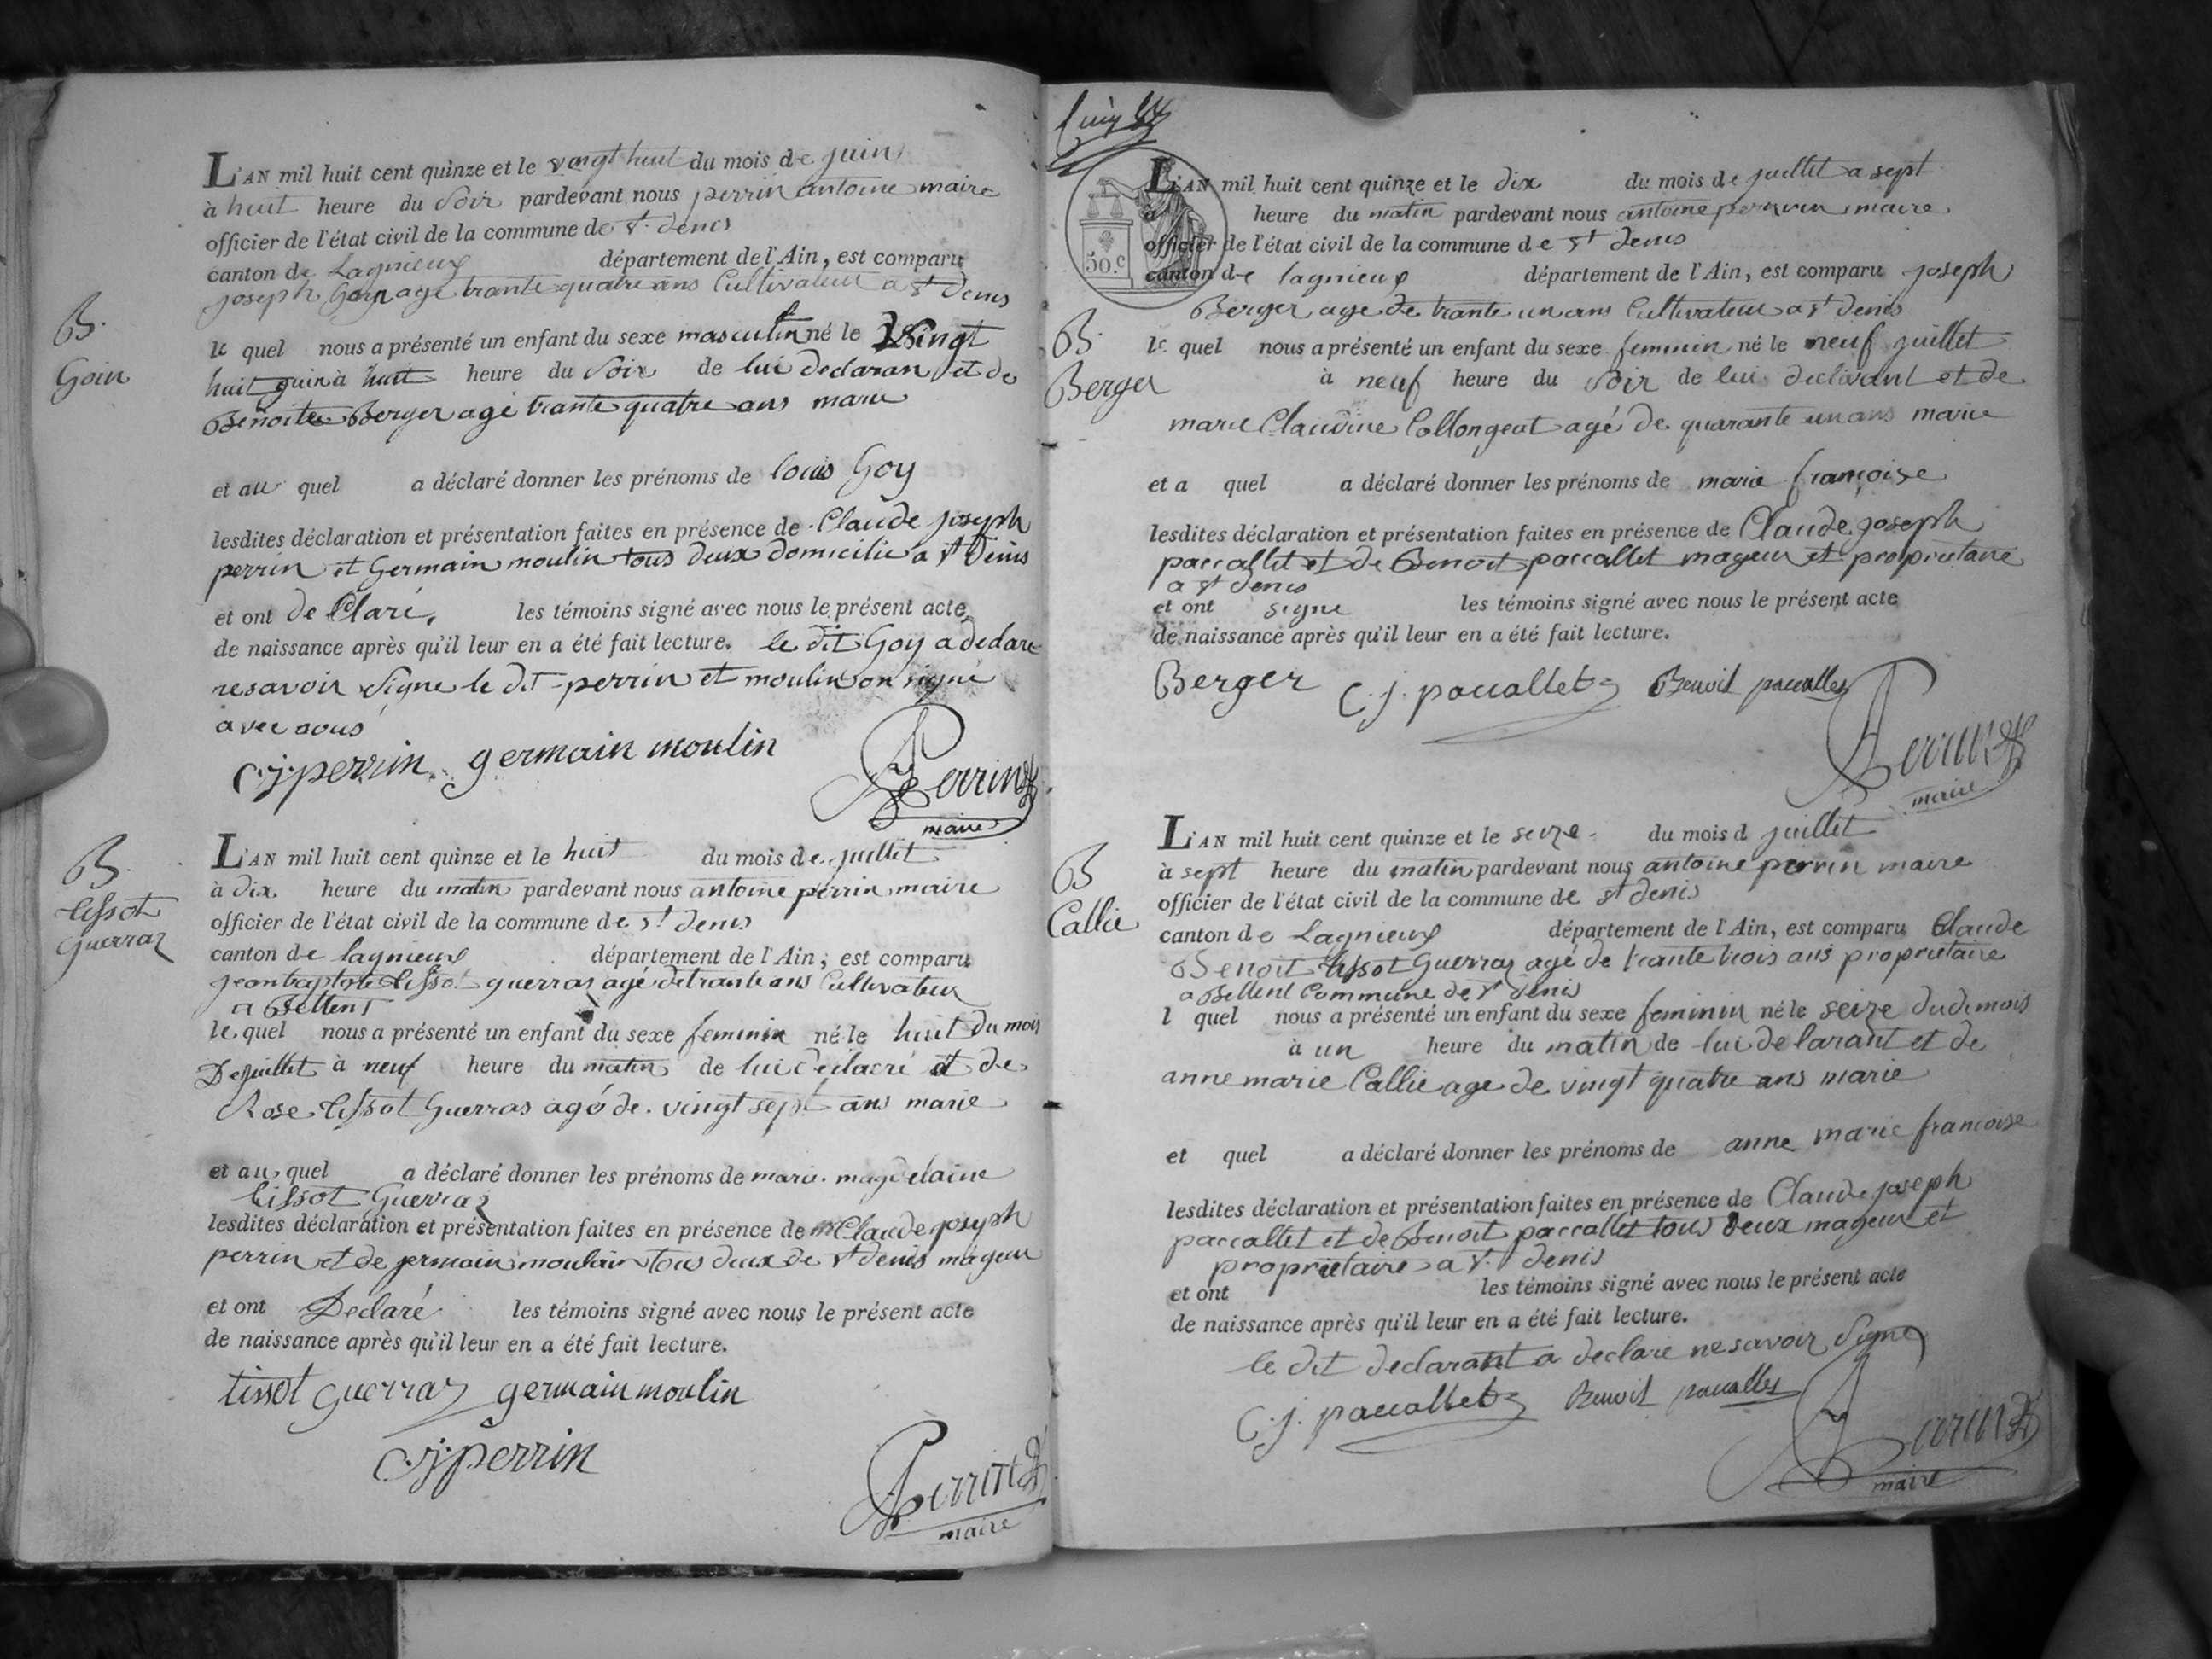 B.
Goin
L'AN mil huit cent quinze et le vingt huit du mois de juin
à huit heure du Soir pardevant nous perrin antoine maire
officier de l'état civil de la commune de St. denis
canton de Lagnieux département de l'Ain, est comparu
joseph agé trante quatre ans Cultivateur a St denis
le quel nous a présenté un enfant du sexe masculin né le Vingt
huit juin à huit heure du Soir de lui declaran et de
Benoite Berger agé trante quatre ans marie
et au quel a déclaré donner les prénoms de louis Goy
lesdites déclaration et présentation faites en présence de Claude joseph
perrin et Germain moulin tous deux domicilié a St Denis
et ont de Claré, les témoins signé avec nous le présent acte
de naissance après qu'il leur en a été fait lecture. le dit Goy a declare
ne savoir Signe le dit perrin et moulin on signé
avec nous
c.j. perrin germain moulin
Perrin
maire
B.
tissot
Guerraz
L'AN mil huit cent quinze et le huit du mois de juillet
à dix heure du matin pardevant nous antoine perrin maire
officier de l'état civil de la commune de St denis
canton de lagnieux département de l'Ain, est comparu
jean baptiste tissot guerraz agé de trante ans Cultivateur
a Bettent
le quel nous a présenté un enfant du sexe feminin né le huit du mois
De juillet à neuf heure du matin de lui et de
Rose tissot Guerras agé de vingt sept ans marie
et au quel a déclaré donner les prénoms de marie magdelaine
tissot Guerraz
lesdites déclaration et présentation faites en présence de Claude joseph
perrin et de germain moulain tous deux de St denis mageur
et ont Declaré les témoins signé avec nous le présent acte
de naissance après qu'il leur en a été fait lecture.
tissot guerraz germain moulin
c.j. perrin
Perrin
maire
50.C
B.
Berger
L'AN mil huit cent quinze et le dix du mois de juillet a sept
à heure du matin pardevant nous antoine perrin maire
officier de l'état civil de la commune de St denis
canton de lagnieux département de l'Ain, est comparu joseph
Berger age de trante un ans Cultivateur a St denis
le quel nous a présenté un enfant du sexe feminin né le neuf juillet
à neuf heure du Soir de lui declarant et de
marie Claudine Collongeat agé de quarante un ans marie
et a quel a déclaré donner les prénoms de marie françoise
lesdites déclaration et présentation faites en présence de Claude joseph
paccallet et de Benoit paccallet mageur et proprietaire
a St denis
et ont signe les témoins signé avec nous le présent acte
de naissance après qu'il leur en a été fait lecture.
Berger C. j. paccallet Benoit paccallet
Perrin
maire
B
Callie
L'AN mil huit cent quinze et le seize du mois d juillet
à sept heure du matin pardevant nous antoine perrin maire
officier de l'état civil de la commune de St denis
canton de Lagnieux département de l'Ain, est comparu Claude
Benoit tissot Guerraz agé de trante trois ans proprietaire
a Bettent Commune de St denis
l quel nous a présenté un enfant du sexe feminin né le seize dudi mois
à un heure du matin de lui de larant et de
anne marie Callie age de vingt quatre ans marie
et quel a déclaré donner les prénoms de anne marie francoise
lesdites déclaration et présentation faites en présence de Claude joseph
paccallet et de Benoit paccallet tous deux mageur et
proprietaire a St. denis
et ont les témoins signé avec nous le présent acte
de naissance après qu'il leur en a été fait lecture.
le dit declarant a declare ne savoir Signe
C. j. paccallet Benoit paccallet
Perrin
maire